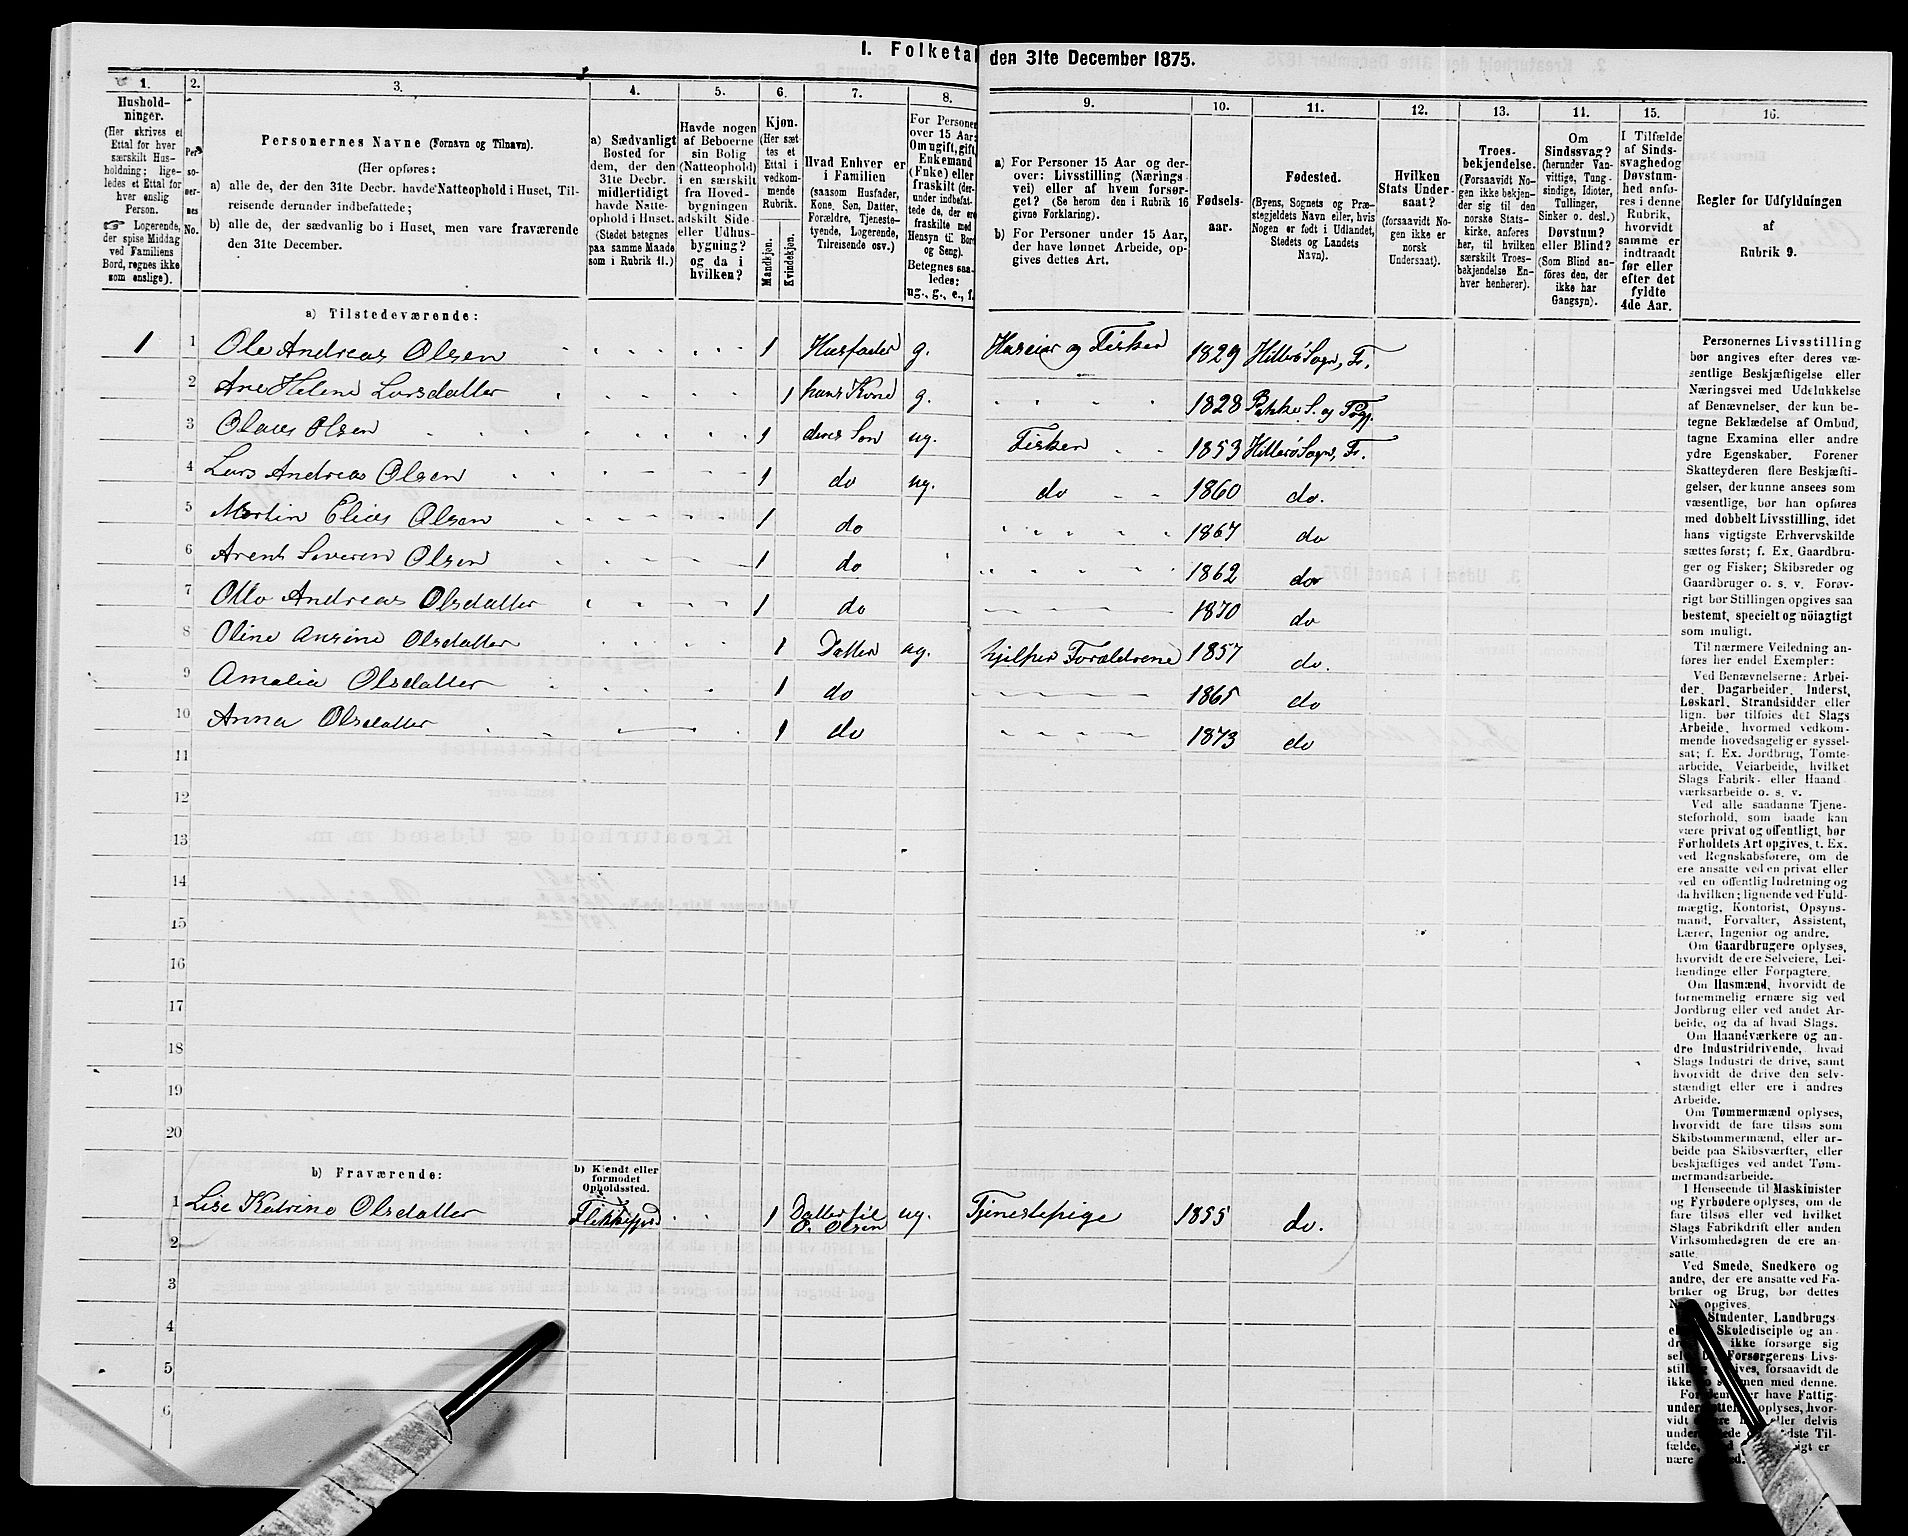 I. Folketal den 31te December 1875.
1. 2. 3. 4. 5. 6. 7. 8. 9. 10. 11. 12. 13. 14. 15. 16.
Hushold-
ninger.
(Her skrives et
Ettal for hver
særskilt Hus-
holdning; lige-
ledes et Ettal for
hver enslig
Person.
☞ Logerende,
der spise Middag
ved Familiens
Bord, regnes ikke
som enslige).
Per-
so-
ner-
nes
No.
Personernes Navne (Fornavn og Tilnavn).
(Her opføres:
a) alle de, der den 31te Decbr. havde Natteophold i Huset, Til-
reisende derunder indbefattede;
b) alle de, der sædvanlig bo i Huset, men vare fraværende
den 31te December.
a) Sædvanligt
Bosted for
dem, der den
31te Decbr.
midlertidigt
havde Natte-
ophold i Huset.
(Stedet betegnes
paa samme Maade
som i Rubrik 11.)
Havde nogen
af Beboerne
sin Bolig
(Natteophold)
i en særskilt
fra Hoved-
bygningen
adskilt Side-
eller Udhus-
bygning?
og da i
hvilken?
Kjøn.
(Her sæt-
tes et
Ettal i
vedkom-
mende
Rubrik.
Mandkjøn.
Kvindekjøn.
Hvad Enhver er
i Familien
(saasom Husfader,
Kone, Søn, Datter,
Forældre, Tjeneste-
tyende, Logerende,
Tilreisende osv.)
For Personer
over 15 Aar:
Om ugift, gift,
Enkemand
(Enke) eller
fraskilt (der-
under indbefat-
tede de, der ere
fraskilte med
Hensyn til Bord
og Seng).
Betegnes saa-
ledes:
ug., g., e., f.
a) For Personer 15 Aar og der-
over: Livsstilling (Nærings-
vei) eller af hvem forsør-
get? (Se herom den i Rubrik 16
givne Forklaring).
b) For Personer under 15 Aar,
der have lønnet Arbeide, op-
gives dettes Art.
Fødsels-
aar.
Fødested.
(Byens, Sognets og Præ-
stegjeldets Navn eller, hvis
Nogen er født i Udlandet,
Stedets og Landets
Navn).
Hvilken
Stats Under-
saat?
(forsaavidt No-
gen ikke er
norsk
Undersaat).
Troes-
bekjendelse.
(Forsaavidt No-
gen ikke bekjen-
der sig til den
norske Stats-
kirke, anføres
her, til hvilken
særskilt Troes-
bekjendelse En-
hver henhører).
Om
Sindssvag?
(herunder Van-
vittige, Tung-
sindige, Idioter,
Tullinger,
Sinker o. desl.)
Døvstum?
eller Blind?
(Som Blind an-
føres den, der
ikke har
Gangsyn).
I Tilfælde
af Sinds-
svaghed og
Døvstum-
hed anfø-
res i denne
Rubrik,
hvorvidt
samme er
indtraadt
før eller
efter det
fyldte
4de Aar.
Regler for Udfyldningen
af
Rubrik 9.
a) Tilstedeværende:
1 1 Ole Andreas Olsen 1 Husfader g. Huseier og Fisker 1829 Hitterø Sogn, Fr.
2 Ane Helene Larsdatter 1 hans Kone g. 1828 Bakke S. og Pgj.
3 Olaus Olsen 1 deres Søn ug. Fisker 1853 Hitterø Sogn, Fr.
4 Lars Andreas Olsen 1 do ug. do 1860 do.
5 Martin Elias Olsen 1 do 1867 do
6 Arent Severin Olsen 1 do 1862 do
7 Otto Andreas Olsdatter 1 do 1870 do
8 Oline Aurine Olsdatter 1 Datter ug. hjelper Forældrene 1857 do.
9 Amalia Olsdatter 1 do 1865 do
10 Anna Olsdatter 1 do 1873 do
11
12
13
14
15
16
17
18
19
20
b) Fraværende:
b) Kjendt eller
formodet
Opholdssted.
1 Lise Katrine Olsdatter Flekkefjord 1 Datter til O. Olsen ug. Tjenestepige 1855 do.
2
3
4
5
6
Personernes Livsstilling
bør angives efter deres væ-
sentlige Beskjæftigelse eller
Næringsvei med Udelukkelse
af Benævnelser, der kun be-
tegne Beklædelse af Ombud,
tagne Examina eller andre
ydre Egenskaber. Forener
Skatteyderen flere Beskjæfti-
gelser, der kunne ansees som
væsentlige, bør han opføres
med dobbelt Livsstilling, idet
hans vigtigste Erhvervskilde
sættes først; f. Ex. Gaardbru-
ger og Fisker; Skibsreder og
Gaardbruger o. s. v. Forøv-
rigt bør Stillingen opgives saa
bestemt, specielt og nöiagtigt
som muligt.
Til nærmere Veiledning an-
føres her endel Exempler:
Ved Benævnelserne: Arbei-
der, Dagarbeider, Inderst,
Løskarl, Strandsidder eller
lign. bør tilføies det Slags
Arbeide, hvormed vedkom-
mende hovedsagelig er syssel-
sat; f. Ex. Jordbrug, Tomte-
arbeide, Veiarbeide, hvilket
Slags Fabrik- eller Haand-
værksarbeide o. s. v.
Ved alle saadanne Tjene-
steforhold, som baade kan
være privat og offentligt, bør
Forholdets Art opgives, t. Ex.
ved Regnskabsførere, om de
ere ansatte ved en privat eller
ved en offentlig Indretning og
da hvilken; lignende ved Fuld-
mægtig, Kontorist, Opsyns-
mand, Forvalter, Assistent,
Lærer, Ingeniør og andre.
Om Gaardbrugere oplyses,
hvorvidt de ere Selveiere, Lei-
lændinge eller Forpagtere.
Om Husmænd, hvorvidt de
fornemmelig ernære sig ved
Jordbrug eller ved andet Ar-
beide, og da af hvad Slags.
Om Haandværkere og an-
dre Industridrivende, hvad
Slags Industri de drive, samt
hvorvidt de drive den selv-
stændigt eller ere i andres
Arbeide.
Om Tømmermænd oplyses,
hvorvidt de fare tilsøs som
Skibstømmermænd, eller ar-
beide paa Skibsværfter, eller
beskjæftiges ved andet Tøm-
mermandsarbeide.
I Henseende til Maskinister
og Fyrbødere oplyses, om de
fare tilsøs eller ved hvilket
Slags Fabrikdrift eller anden
Virksomhedsgren de ere an-
satte.
Ved Smede, Snedkere og
andre, der ere ansatte ved Fa-
briker og Brug, bør dettes
opgives.
Studenter, Landbrugs
Skoledisciple og an-
ikke forsørge sig
Forsørgerens Livs-
forsaavidt de
ikke med denne.
have Fattig-
oplyses, hvor-
vidt eller delvis
sidste Til-
fælde,
nære